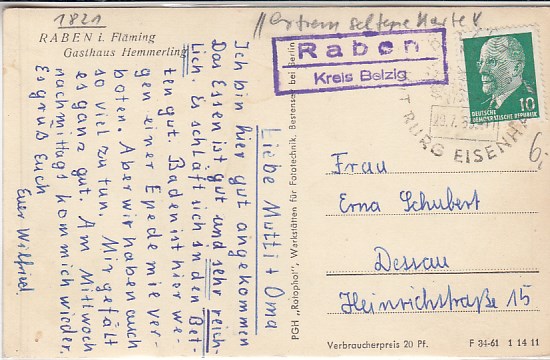 1821
//extrem seltene Karte!
RABEN i. Fläming
Gasthaus Hemmerling
Raben
Kreis Belzig
10
DEUTSCHE
DEMOKRATISCHE REPUBLIK
BURG EISENH
6,
Liebe Mutti + Oma
Ich bin hier gut angekommen
Das Essen ist gut und sehr reich-
lich. Es schläft sich in den Bet-
ten gut. Baden ist hier we-
gen einer Epedemie ver-
boten. Aber wir haben auch
so viel zu tun. Mir gefällt
es ganz gut. Am Mittwoch
nachmittags komm ich wieder.
Es grüß Euch
Euer Wilfried.
PGH „Rotophot", Werkstätten für Fototechnik, Bestensee bei Berlin
Frau
Erna Schubert
Dessau
Heinrichstraße 15
Verbraucherpreis 20 Pf.
F 34-61 1 14 11